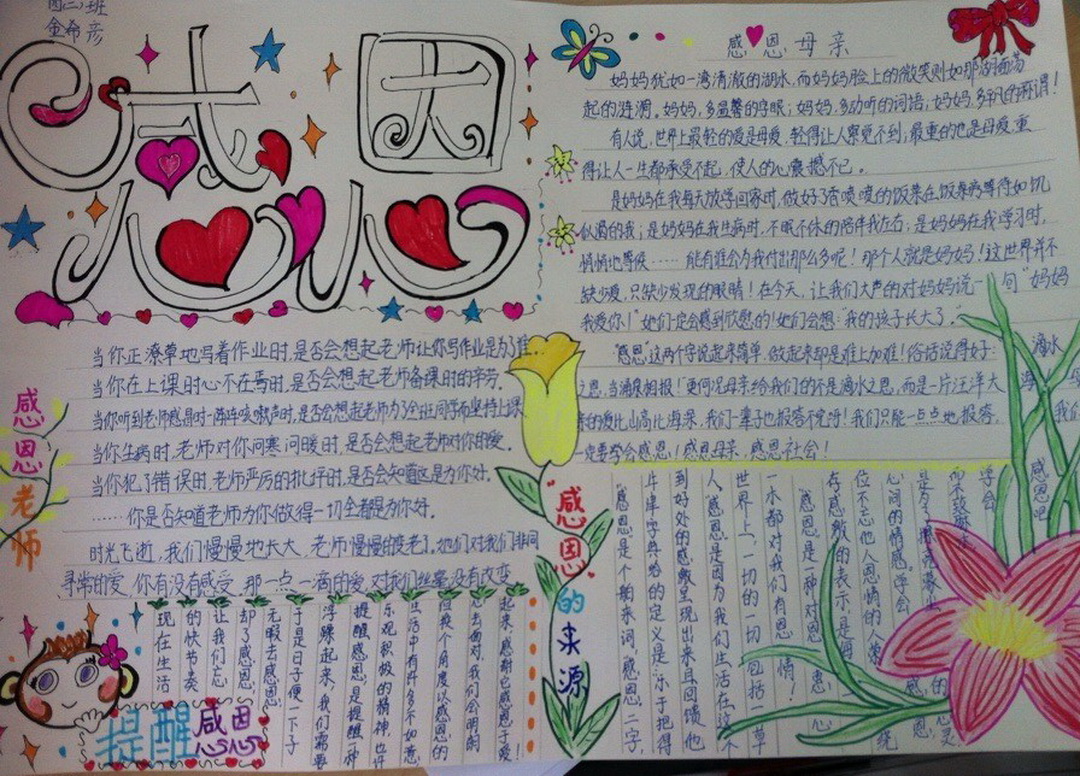 四(二)班
金希彦
感恩
感恩母亲
妈妈犹如一湾清澈的湖水,而妈妈脸上的微笑则如那湖面荡
起的涟漪。妈妈,多温馨的字眼;妈妈,多动听的词语;妈妈,多平凡的称谓!
有人说,世界上最轻的爱是母爱,轻得让人察觉不到;最重的也是母爱,重
得让人一生都承受不起,使人的心震撼不已。
是妈妈在我每天放学回家时,做好了香喷喷的饭菜在饭桌旁等待如饥
似渴的我;是妈妈在我生病时,不眠不休的陪伴我左右;是妈妈在我学习时,
悄悄地等候……能有谁会为我付出那么多呢!那个人就是妈妈!这世界并不
缺少爱,只缺少发现的眼睛!在今天,让我们大声的对妈妈说一句“妈妈
我爱你!”她们一定会感到欣慰的!她们会想:“我的孩子长大了。”
“感恩”这两个字说起来简单,做起来却是难上加难!俗话说得好:滴水
之恩,当涌泉相报!更何况母亲给我们的不是滴水之恩,而是一片汪洋大海
的爱比山高比海深,我们一辈子也报答不完呀!我们只能一点点地报答,我们
一定要学会感恩!感恩母亲,感恩社会!
感恩老师
当你正潦草地写着作业时,是否会想起老师让你写作业是为了谁…
当你在上课时心不在焉时,是否会想起老师备课时的辛劳。
当你听到老师感冒时一阵阵咳嗽声时,是否会想起老师为了全班同学而坚持上课。
当你生病时,老师对你问寒问暖时,是否会想起老师对你的爱。
当你犯了错误时,老师严厉的批评时,是否会知道这是为你好。
……你是否知道老师为你做得一切全都是为你好。
时光飞逝,我们慢慢地长大,老师慢慢的变老了。她们对我们非同
寻常的爱,你有没有感受,那一点一滴的爱,对我们丝毫没有改变
提醒感恩
现在生活
的快节奏
让我们忘
却了感恩,
无暇去感恩,
于是日子便一下子
浮躁起来,我们需要
提醒感恩,是提醒一种
乐观积极的精神,也许
生活中有许多不如意,
但换个角度以感恩的
心去面对,我们会明朗
起来,感谢它感恩于爱!
“感恩”的来源
“感恩”是个舶来词,“感恩”二字,
牛津字典给的定义是:“乐于把得
到好处的感激呈现出来且回馈他
人。”“感恩”是因为我们生活在这个
世界上,一切的一切,包括一草
一木都对我们有恩情!
“感恩”是一种对恩惠心
存感激的表示,是每一
位不忘他人恩情的人萦绕
心间的情感。学会感恩,
学会
感恩吧